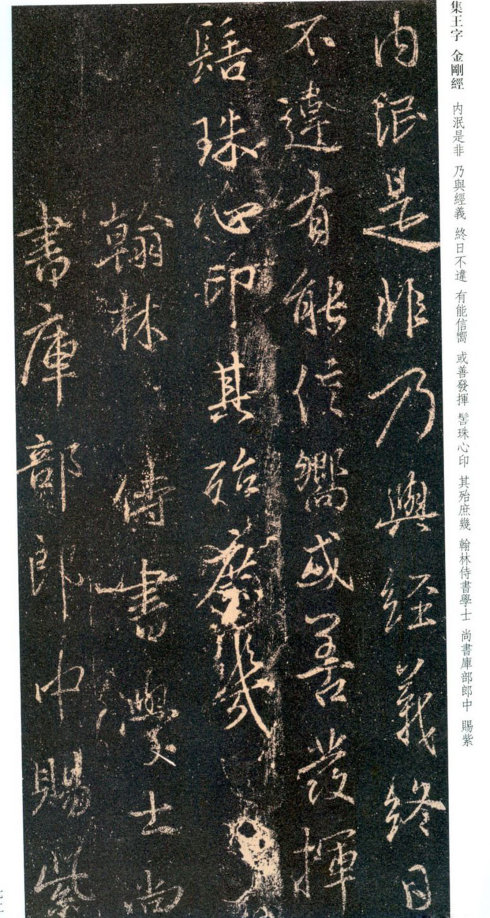 集王字 金剛經 内泯是非 乃與經義 終日不違 有能信嚮 或善發揮 髻珠心印 其殆庶幾 翰林侍書學士 尚書庫部郎中 賜紫
内泯是非乃與經義終日
不違有能信嚮或善發揮
髻珠心印其殆庶幾
翰林侍書學士尚
書庫部郎中賜紫